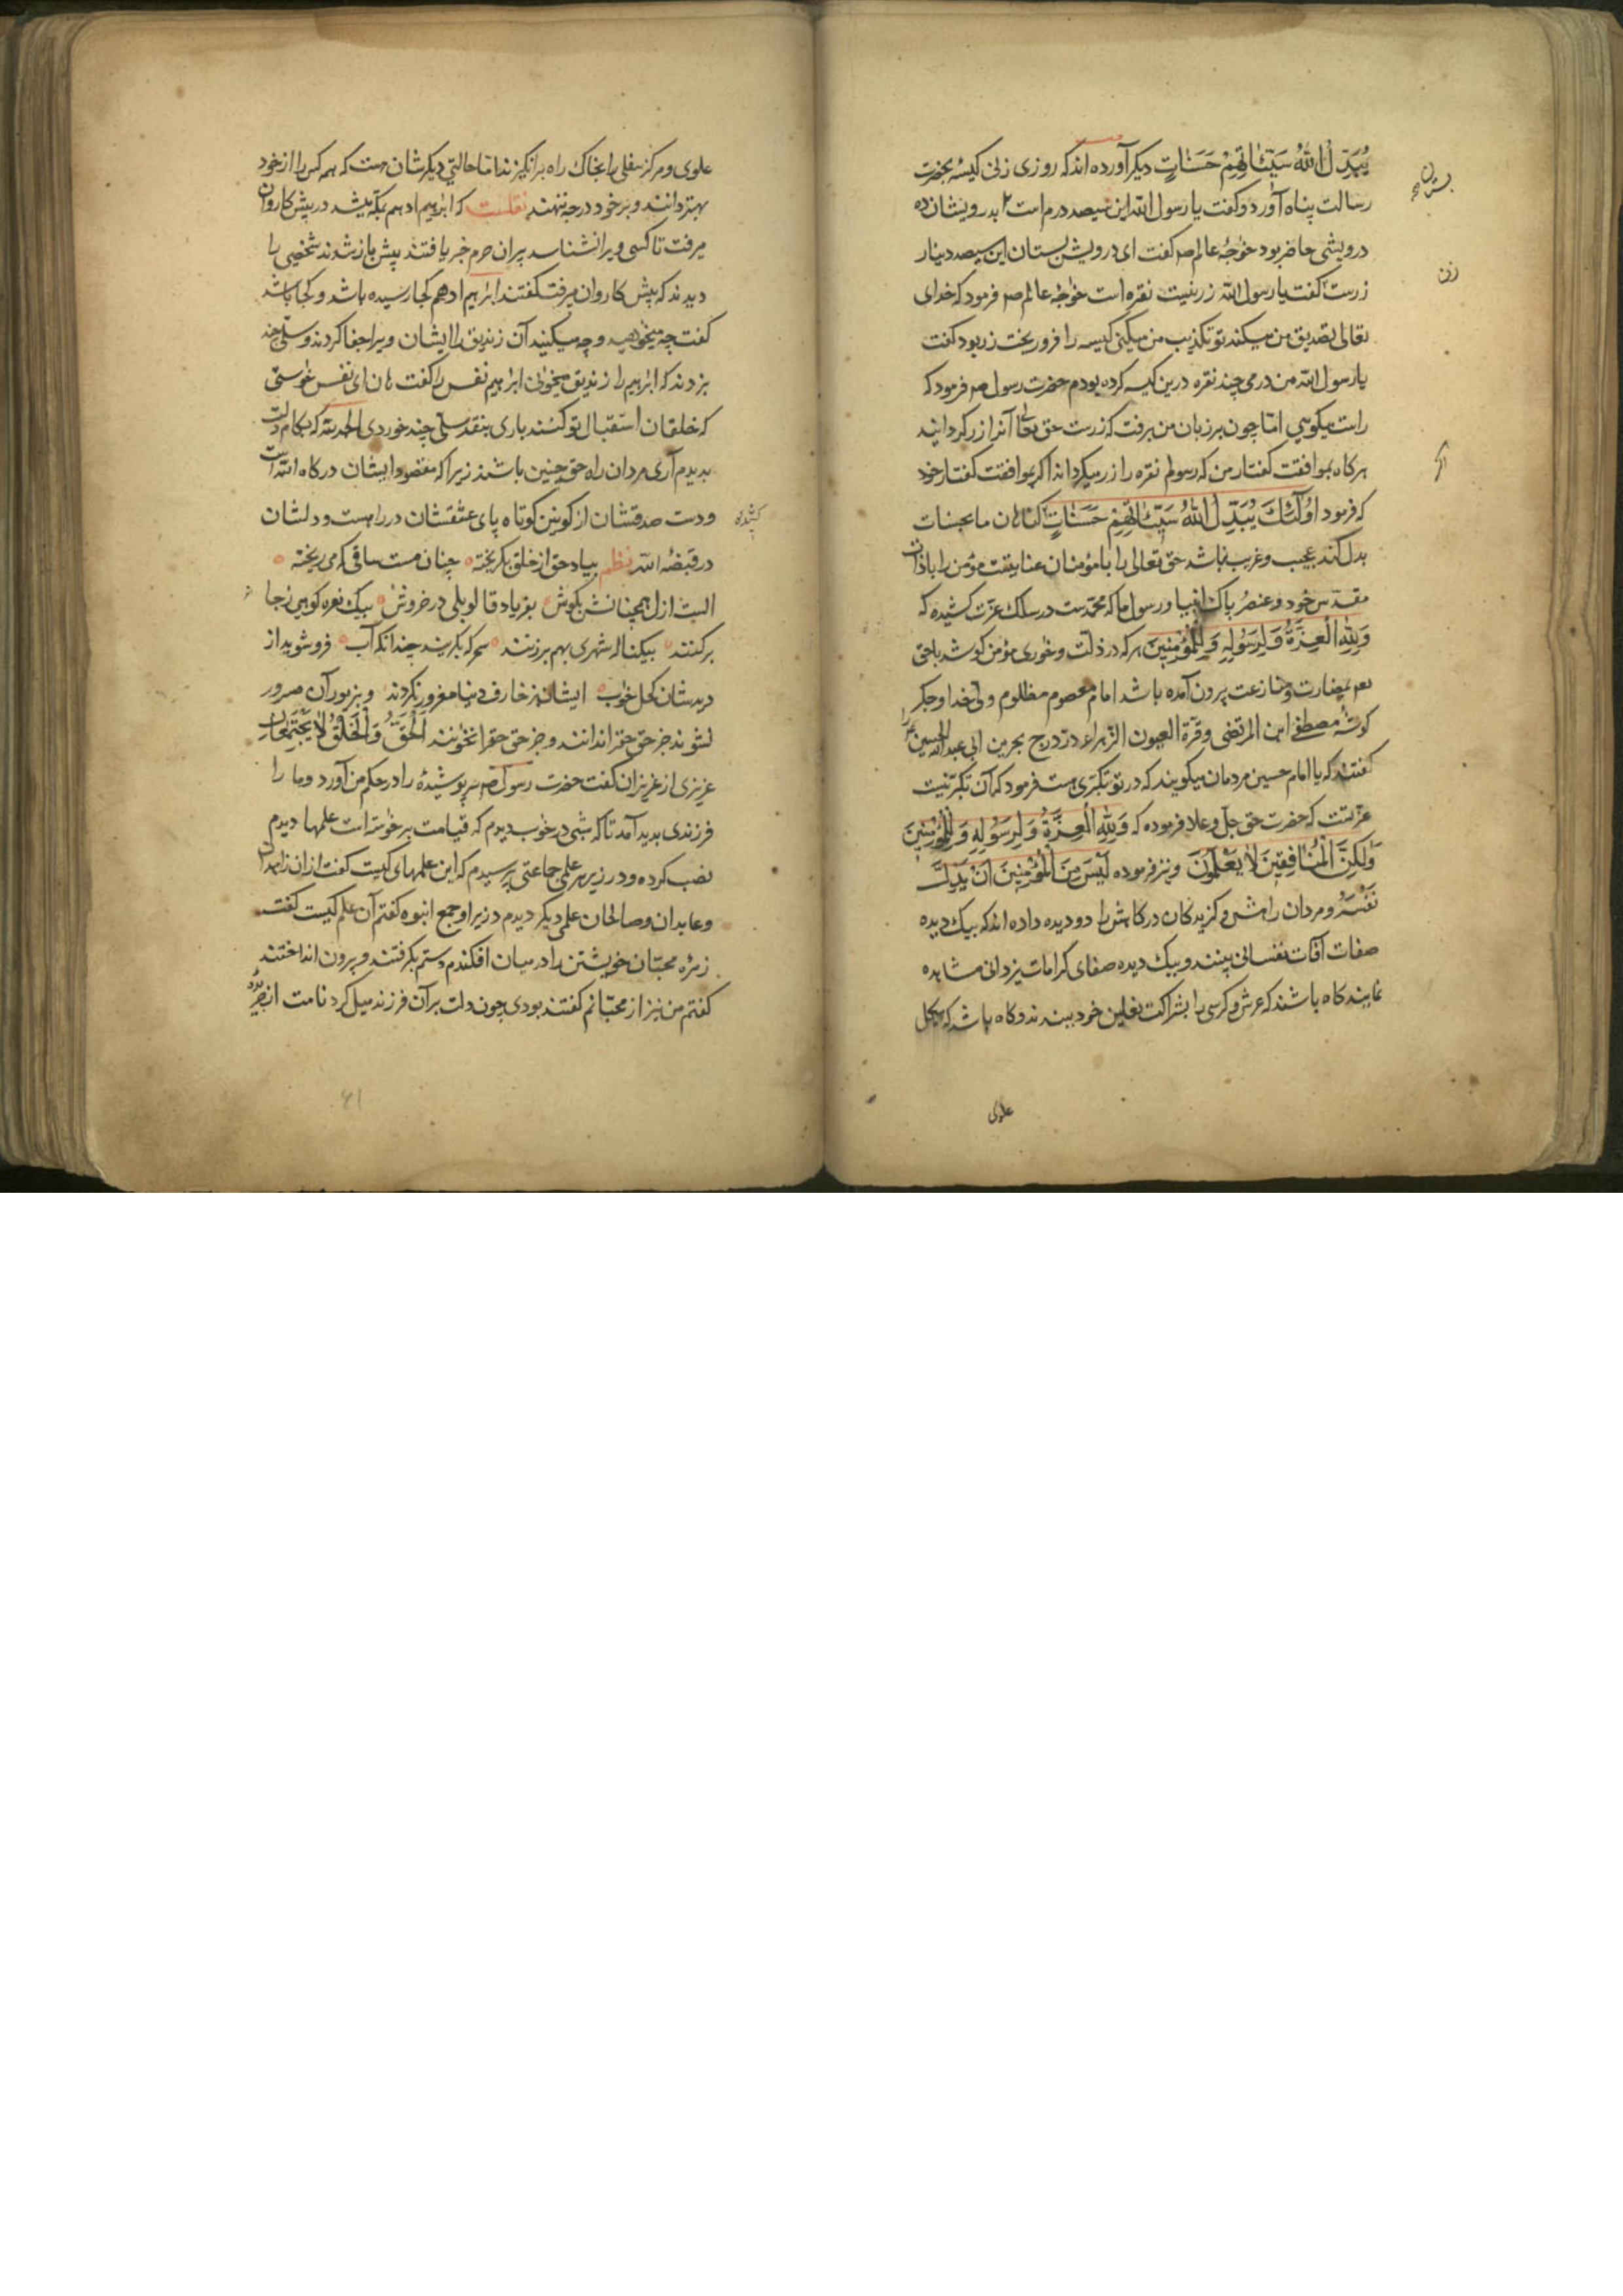 یُبَدِّلُ اللّٰهُ سَیِّئاتِهِمْ حَسَناتٍ دیکر آورده اند که روزی زنی کیسهٔ بحضرت
رسالت پناه آورد و کفت یا رسول اللّه این سیصد درم است بدرویشان ده
درویشی حاضر بود خواجهٔ عالم ص کفت ای درویش بستان این سیصد دینار
زرست کفت یا رسول اللّه زر نیست نقره است خواجهٔ عالم ص فرمود که خدای
تعالی تصدیق من میکند تو تکذیب من میکنی کیسه را فرو ریخت زر بود کفت
یا رسول اللّه من درمی چند نقره درین کیسه کرده بودم حضرت رسول ص فرمود که
راست میکویی امّا چون بر زبان من برفت که زرست حق تعالی آنرا زر کردانید
هرکاه بموافقت کفتار من که رسولم نقره را زر میکرداند اکر بموافقت کفتار خود
که فرمود اُولٰئِکَ یُبَدِّلُ اللّٰهُ سَیِّئاتِهِمْ حَسَناتٍ کناهان ما بحسنات
بدل کند عجیب و غریب نباشد حق تعالی را با مؤمنان عنایتست مؤمن را با ذات
مقدّس خود و عنصر پاک انبیا و رسول ما که محمّدست در سلک عزّت کشیده که
وَلِلّٰهِ الْعِزَّةُ وَلِرَسُولِهِ وَلِلْمُؤْمِنِینَ هرکه در ذلّت و خواری مؤمن کوشد با حق
بمنازعت بیرون آمده باشد امام معصوم مظلوم ولی خدا و جکر
کوشهٔ مصطفی ابن المرتضی و قرّة العیون الزهراء درّ درج بحرین ابی عبد اللّه الحسین را
کفتند که یا امام حسین مردمان میکویند که در تو تکبّری هست فرمود که آن تکبّر نیست
عزّتست که حضرت حق جلّ و علا فرموده که وَلِلّٰهِ الْعِزَّةُ وَلِرَسُولِهِ وَلِلْمُؤْمِنِینَ
وَلٰکِنَّ الْمُنافِقِینَ لا یَعْلَمُونَ و نیز فرموده لَیْسَ مِنَ الْمُؤْمِنِینَ اَنْ یُذِلَّ
نَفْسَهُ و مردان راهش و کزیدکان درکاهش را دو دیده داده اند که بیک دیده
صفات آفات نفسانی بینند و بیک دیده صفای کرامات یزدانی مشاهده
نمایند کاه باشند که عرش و کرسی را بشراکت نعلین خود ببینند و کاه باشد که هیکل
زن
علوی
علوی و مرکز سفلی را بخاک راه برانکیزند امّا حالتی دیکرشان هست که همه کس را از خود
بهتر دانند و بر خود درجه نهند نقلست که ابراهیم ادهم بمکّه میشد در پیش کاروان
میرفت تا کسی ویرا نشناسد پیران حرم خبر یافتند پیش باز شدند شخصی را
دیدند که پیش کاروان میرفت کفتند ابراهیم ادهم کجا رسیده باشد و کجا باشد
کفت چه میخواهید و چه میکنید آن زندیق را ایشان ویرا جفا کردند و سیلی چند
بزدند که ابراهیم را زندیق میخوانی ابراهیم نفس را کفت هان ای نفس خواستی
که خلقان استقبال تو کنند باری بنقد سیلی چند خوردی الحمد للّه که بکام دلت
بدیدم آری مردان راه حق چنین باشند زیرا که مقصود ایشان درکاه اللّه است
و دست صدقشان از کونین کوتاه پای عشقشان در راهست و دلشان
در قبضهٔ اللّه نظم بیاد حق از خلق بکریخته چنان مست ساقی که می ریخته
الست از ازل همچنانش بکوش بفریاد قالو بلی در خروش بیک نعره کوهی ز جا
برکنند بیک ناله شهری بهم برزنند سحرکه بکریند چندانکه آب فرو شوید از
دیدشان کحل خواب ایشان بزخارف دنیا مغرور نکردند و بزیور آن مسرور
نشوند جز حق حق را ندانند و جز حق حق را نخوانند اَلْحَقُّ وَالْخَلْقُ لا یَجْتَمِعانِ
عزیزی از عزیزان کفت حضرت رسول ص سرپوشیدهٔ را در حکم من آورد و ما را
فرزندی بدید آمد تا که شبی در خواب دیدم که قیامت برخواسته است علمها دیدم
نصب کرده و در زیر هر علمی جماعتی پرسیدم که این علمهای کیست کفت از ان زاهدان
و عابدان و صالحان علمی دیکر دیدم در زیر او جمع انبوه کفتم آن علم کیست کفت
زمرهٔ محبّان خویشتن را در میان افکندم دستم بکرفتند و بیرون انداختند
کفتم من نیز از محبّانم کفتند بودی چون دلت بر آن فرزند میل کرد نامت از جریدهٔ
کشیده
۶۱